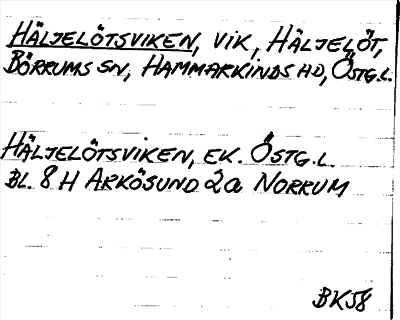 HÄLJELÖTSVIKEN, VIK, HÄLJELÖT,
BÖRRUMS SN, HAMMARKINDS HD, ÖSTG.L.
HÄLJELÖTSVIKEN, EK. ÖSTG.L.
BL. 8 H ARKÖSUND 2a NORRUM
BK58